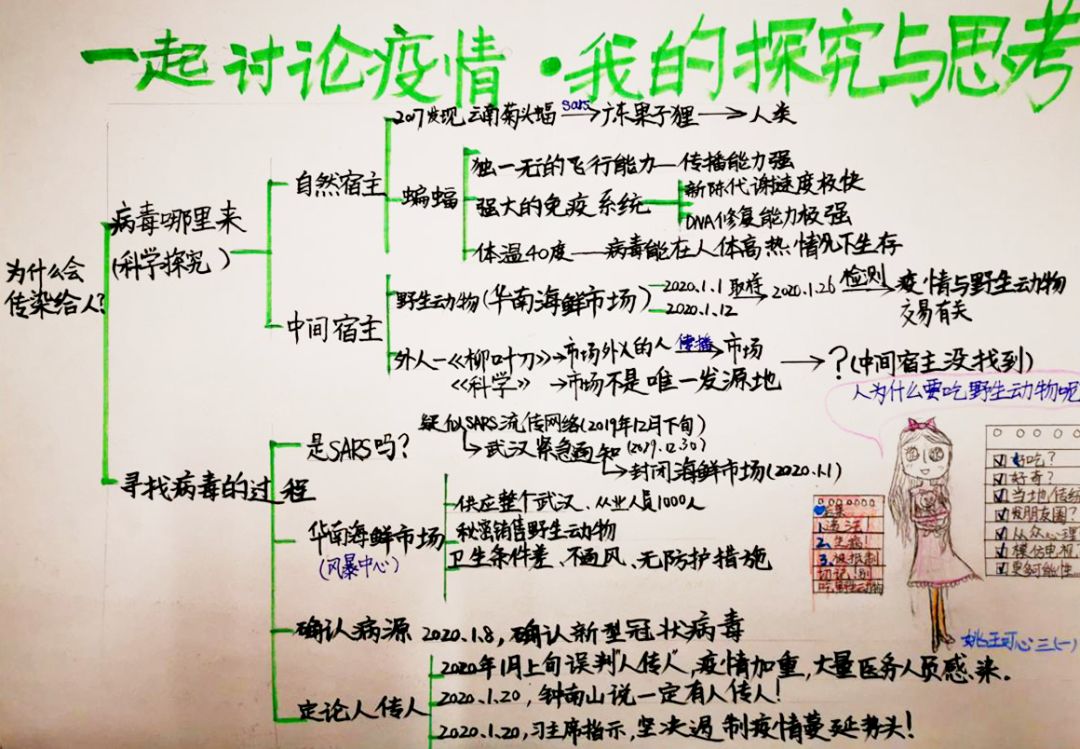 一起讨论疫情·我的探究与思考
2017发现云南菊头蝠 sars 广东果子狸 人类
自然宿主
蝙蝠
独一无的飞行能力—传播能力强
强大的免疫系统
新陈代谢速度极快
DNA修复能力极强
体温40度——病毒能在人体高热情况下生存
病毒哪里来
(科学探究)
为什么会
传染给人?
中间宿主
野生动物(华南海鲜市场)
2020.1.1 取样 2020.1.26 检测 疫情与野生动物
2020.1.12
交易有关
外人—《柳叶刀》→市场外人的人 传播 市场
《科学》→市场不是唯一发源地
?(中间宿主没找到)
人为什么要吃野生动物呢
寻找病毒的过程
是SARS吗?
疑似SARS流传网络(2019年12月下旬)
武汉紧急通知(2019.12.30)
封闭海鲜市场(2020.1.1)
华南海鲜市场
(风暴中心)
供应整个武汉、从业人员1000人
秘密销售野生动物
卫生条件差、不通风、无防护措施
确认病源 2020.1.8,确认新型冠状病毒
定论人传人
2020年1月上旬误判"人传人",疫情加重,大量医务人员感染.
2020.1.20,钟南山说一定有人传人!
2020.1.20,习主席指示,坚决遏制疫情蔓延势头!
1.违法!
2.生病
3.被抵制
切记!别
吃野生动物
好吃?
好奇?
当地传统
发朋友圈?
从众心理
模仿电视
更多可能性...
姚王可心 三(一)